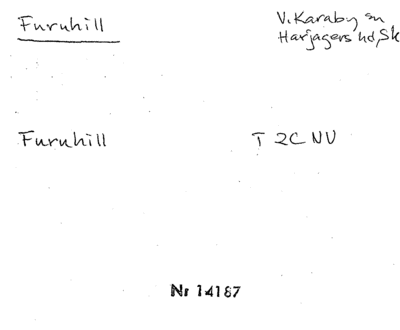 Furuhill
V. Karaby sn
Harjagers hd, Sk
Furuhill
T 2C NV
Nr 14187